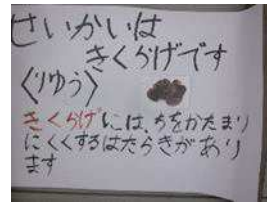 せいかいは
きくらげです
〈りゆう〉
きくらげには、ちをかたまり
にくくするはたらきがあり
ます